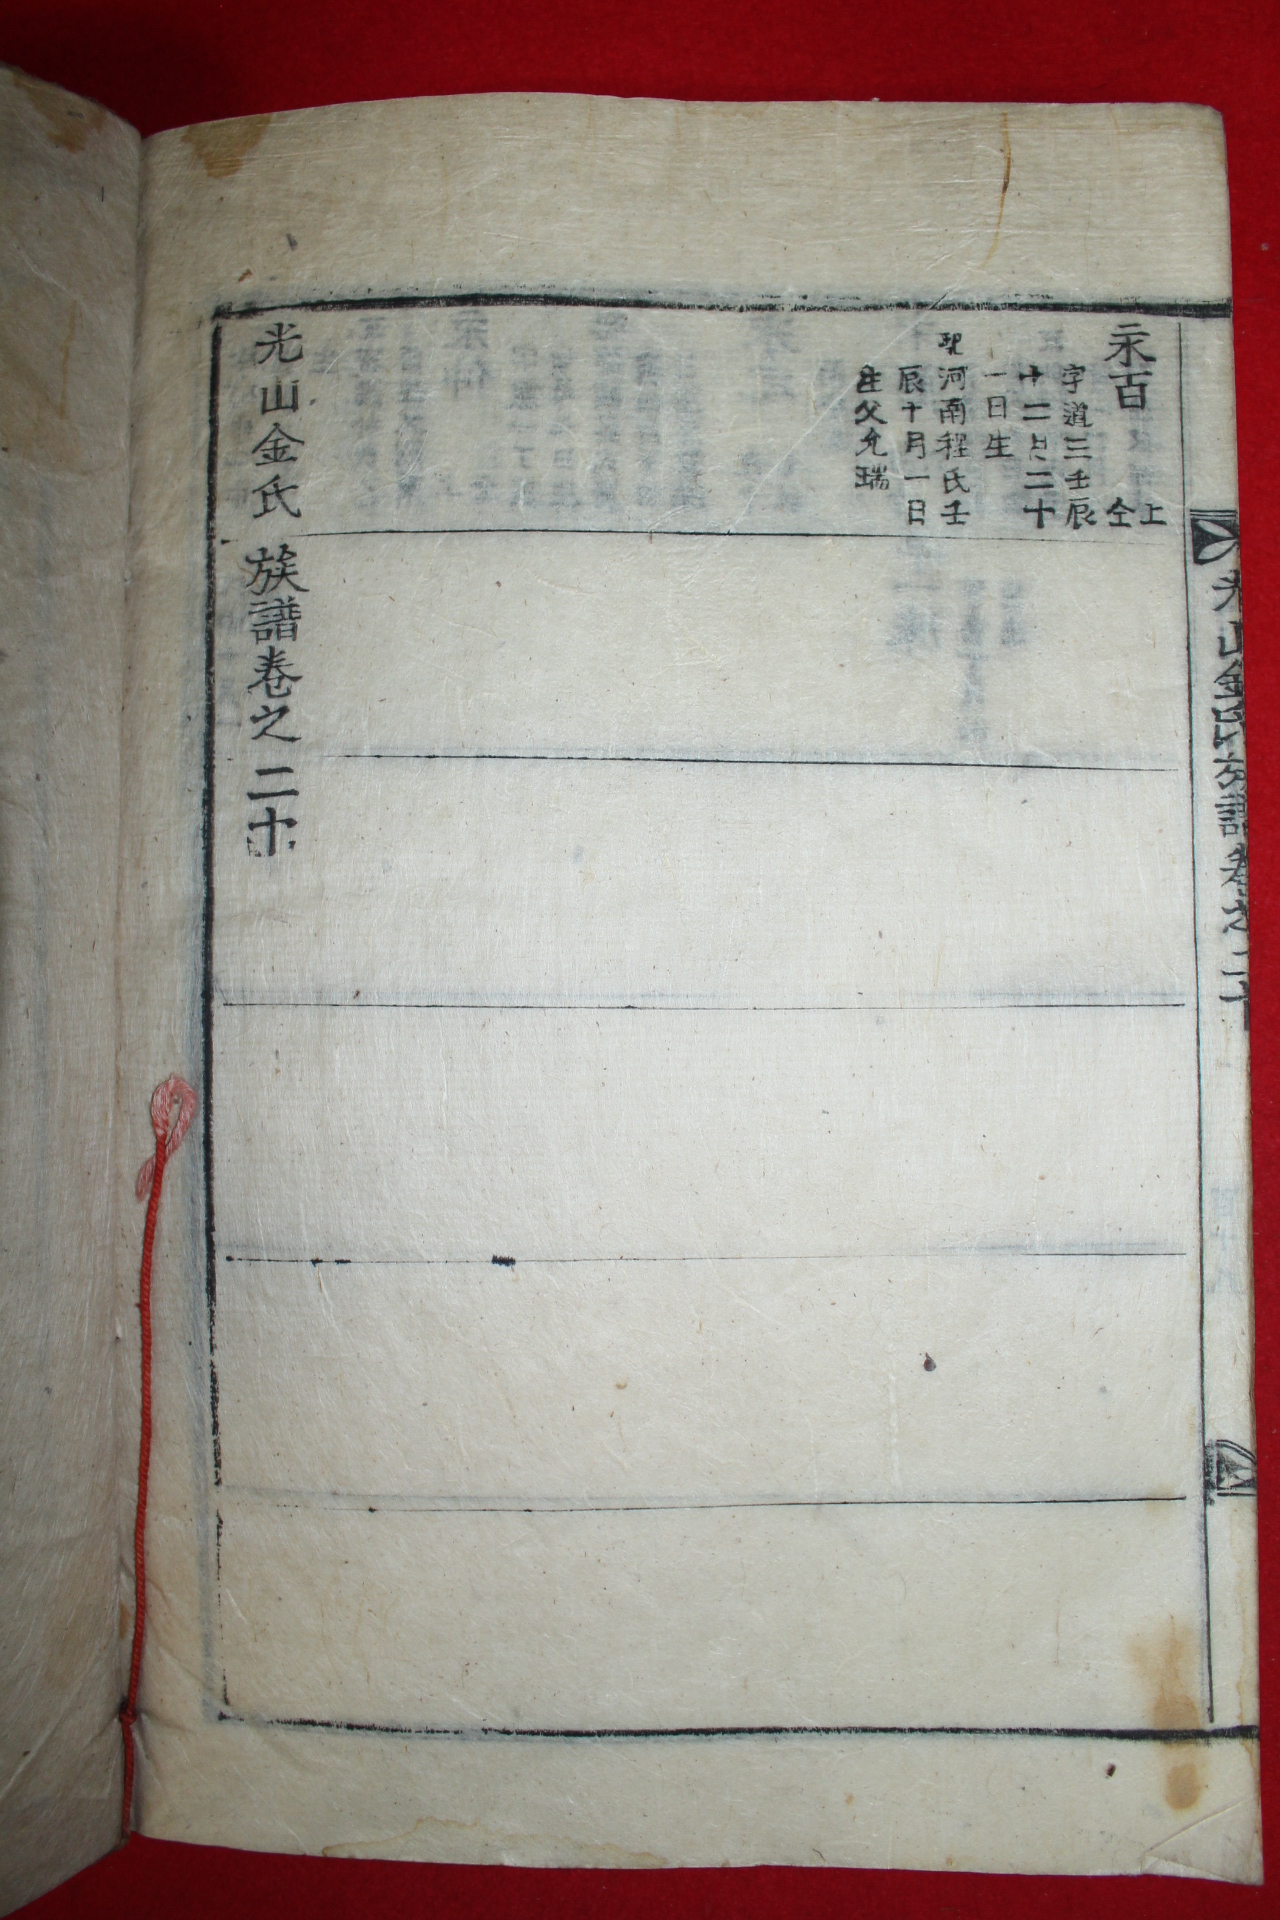 光山金氏族譜卷之二十
永百
上
仝
字道三壬辰
十二月二十
一日生
配河南程氏壬
辰十月一日
生父允瑞
光山金氏族譜卷之二十